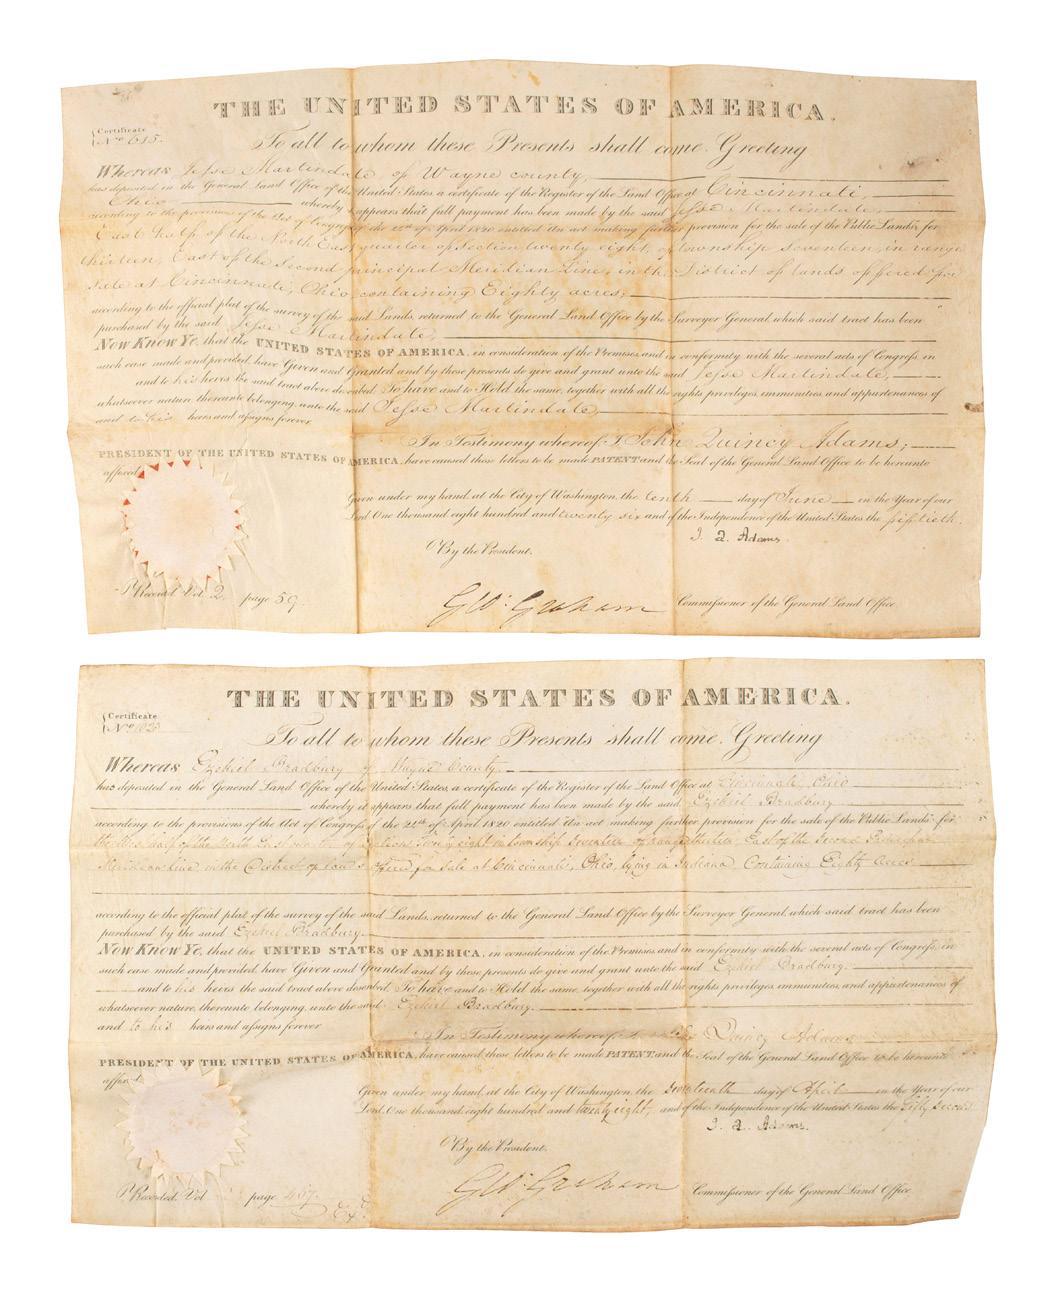 THE UNITED STATES OF AMERICA.
Certificate
No 615.
To all to whom these Presents shall come, Greeting
Whereas Jesse Martindale of Wayne county,
has deposited in the General Land Office of the United States, a certificate of the Register of the Land Office at Cincinnati,
Ohio whereby it appears that full payment has been made by the said Jesse Martindale,
according to the provisions of the Act of Congress of the 24th of April 1820 entitled An act making further provision for the sale of the Public Lands, for
East half of the North East quarter of section twenty eight, of township seventeen, in range
thirteen, East of the Second principal Meridian Line, in the District of lands offered for
sale at Cincinnati, Ohio, containing Eighty acres,
according to the official plat of the survey of the said Lands, returned to the General Land Office by the Surveyor General, which said tract has been
purchased by the said Jesse Martindale,
Now Know Ye, that the UNITED STATES OF AMERICA, in consideration of the Premises, and in conformity with the several acts of Congress, in
such case made and provided, have Given and Granted and by these presents do give and grant unto the said Jesse Martindale,
and to his heirs the said tract above described, To have and to Hold the same, together with all the rights, privileges, immunities, and appurtenances of
whatsoever nature, thereunto belonging, unto the said Jesse Martindale,
and to his heirs and assigns forever.
In Testimony whereof, I, John Quincy Adams;
PRESIDENT OF THE UNITED STATES OF AMERICA, have caused these letters to be made PATENT and the Seal of the General Land Office to be hereunto
affixed
Given under my hand, at the City of Washington, the tenth day of June in the Year of our
Lord One thousand eight hundred and twenty six and of the Independence of the United States the fiftieth.
J. Q. Adams
By the President.
Recorded, Vol. 2 page 59. G W: Graham Commissioner of the General Land Office
THE UNITED STATES OF AMERICA.
Certificate
No
To all to whom these Presents shall come, Greeting
Whereas Ezekiel Bradbury of Wayne County.
has deposited in the General Land Office of the United States, a certificate of the Register of the Land Office at Cincinnati Ohio
whereby it appears that full payment has been made by the said Ezekiel Bradbury
according to the provisions of the Act of Congress of the 24th of April 1820 entitled An act making further provision for the sale of the Public Lands for
the half of the North East quarter of Section twenty eight in township Seventeen of range thirteen, East of the Second Principal
Meridian line in the District of lands offered for sale at Cincinnati, Ohio, lying in Indiana, Containing Eighty Acres
according to the official plat of the survey of the said Lands, returned to the General Land Office by the Surveyor General, which said tract has been
purchased by the said Ezekiel Bradbury
Now Know Ye, that the UNITED STATES OF AMERICA, in consideration of the Premises, and in conformity with the several acts of Congress, in
such case made and provided, have Given and Granted and by these presents do give and grant unto the said Ezekiel Bradbury.
and to his heirs the said tract above described, To have and to Hold the same, together with all the rights, privileges, immunities, and appurtenances of
whatsoever nature, thereunto belonging, unto the said Ezekiel Bradbury.
and to his heirs and assigns forever
In Testimony whereof, I Quincy Adams
PRESIDENT OF THE UNITED STATES OF AMERICA, have caused these letters to be made PATENT and the Seal of the General Land Office to be hereunto
affixed
Given under my hand, at the City of Washington, the day of April in the Year of our
Lord One thousand eight hundred and twenty eight and of the Independence of the United States the fifty second
J. Q. Adams.
By the President.
Recorded, Vol page 457. G W: Graham Commissioner of the General Land Office